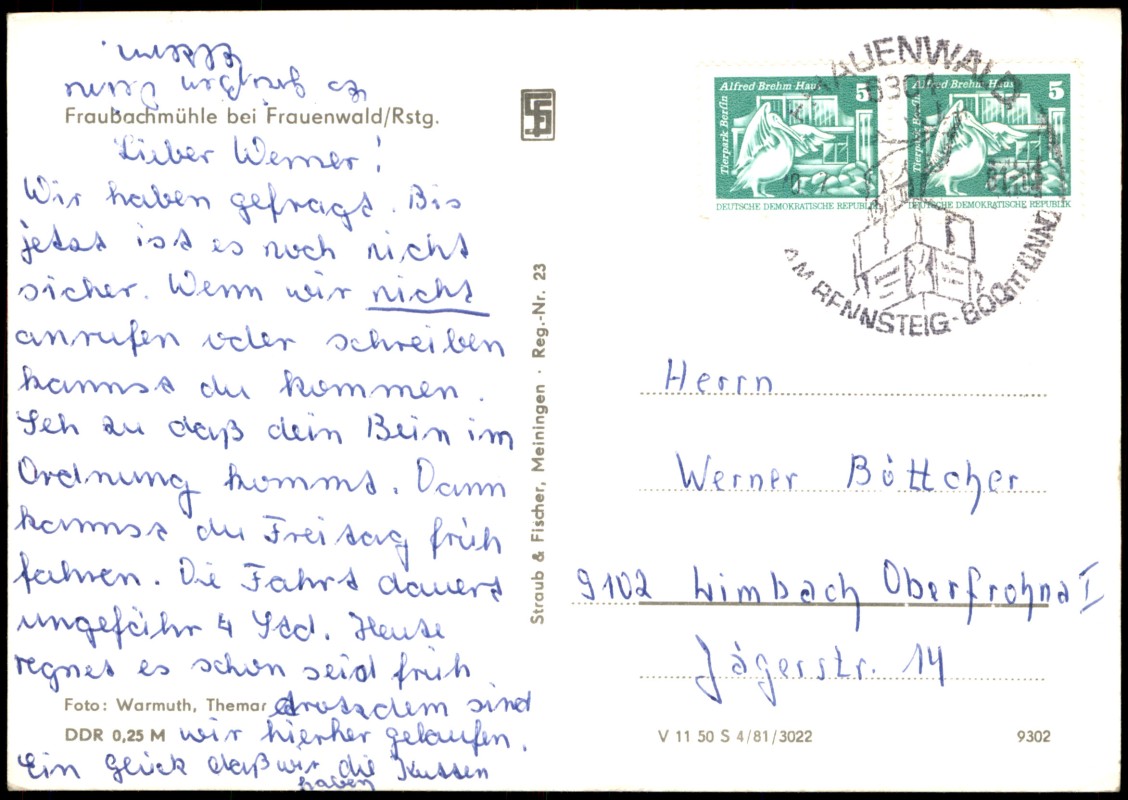 Fraubachmühle bei Frauenwald/Rstg.
Lieber Werner!
Wir haben gefragt. Bis
jetzt ist es noch nicht
sicher. Wenn wir nicht
anrufen oder schreiben
kannst du kommen.
Seh zu daß dein Bein im
Ordnung kommt. Dann
kannst du Freitag früh
fahren. Die Fahrt dauert
ungefähr 4 Std. Heute
regnet es schon seid früh
trotzdem sind
wir hierher gelaufen.
Ein Glück daß wir die Kutten
haben
Es grüßen deine
Eltern
Foto: Warmuth, Themar
DDR 0,25 M
Straub & Fischer, Meiningen · Reg.-Nr. 23
Alfred Brehm Haus 5
Tierpark Berlin
DEUTSCHE DEMOKRATISCHE REPUBLIK
Alfred Brehm Haus 5
Tierpark Berlin
DEUTSCHE DEMOKRATISCHE REPUBLIK
FRAUENWALD
6301
AM RENNSTEIG - 800m ü.NN
Herrn
Werner Böttcher
9102 Limbach Oberfrohna I
Jägerstr. 14
V 11 50 S 4/81/3022
9302